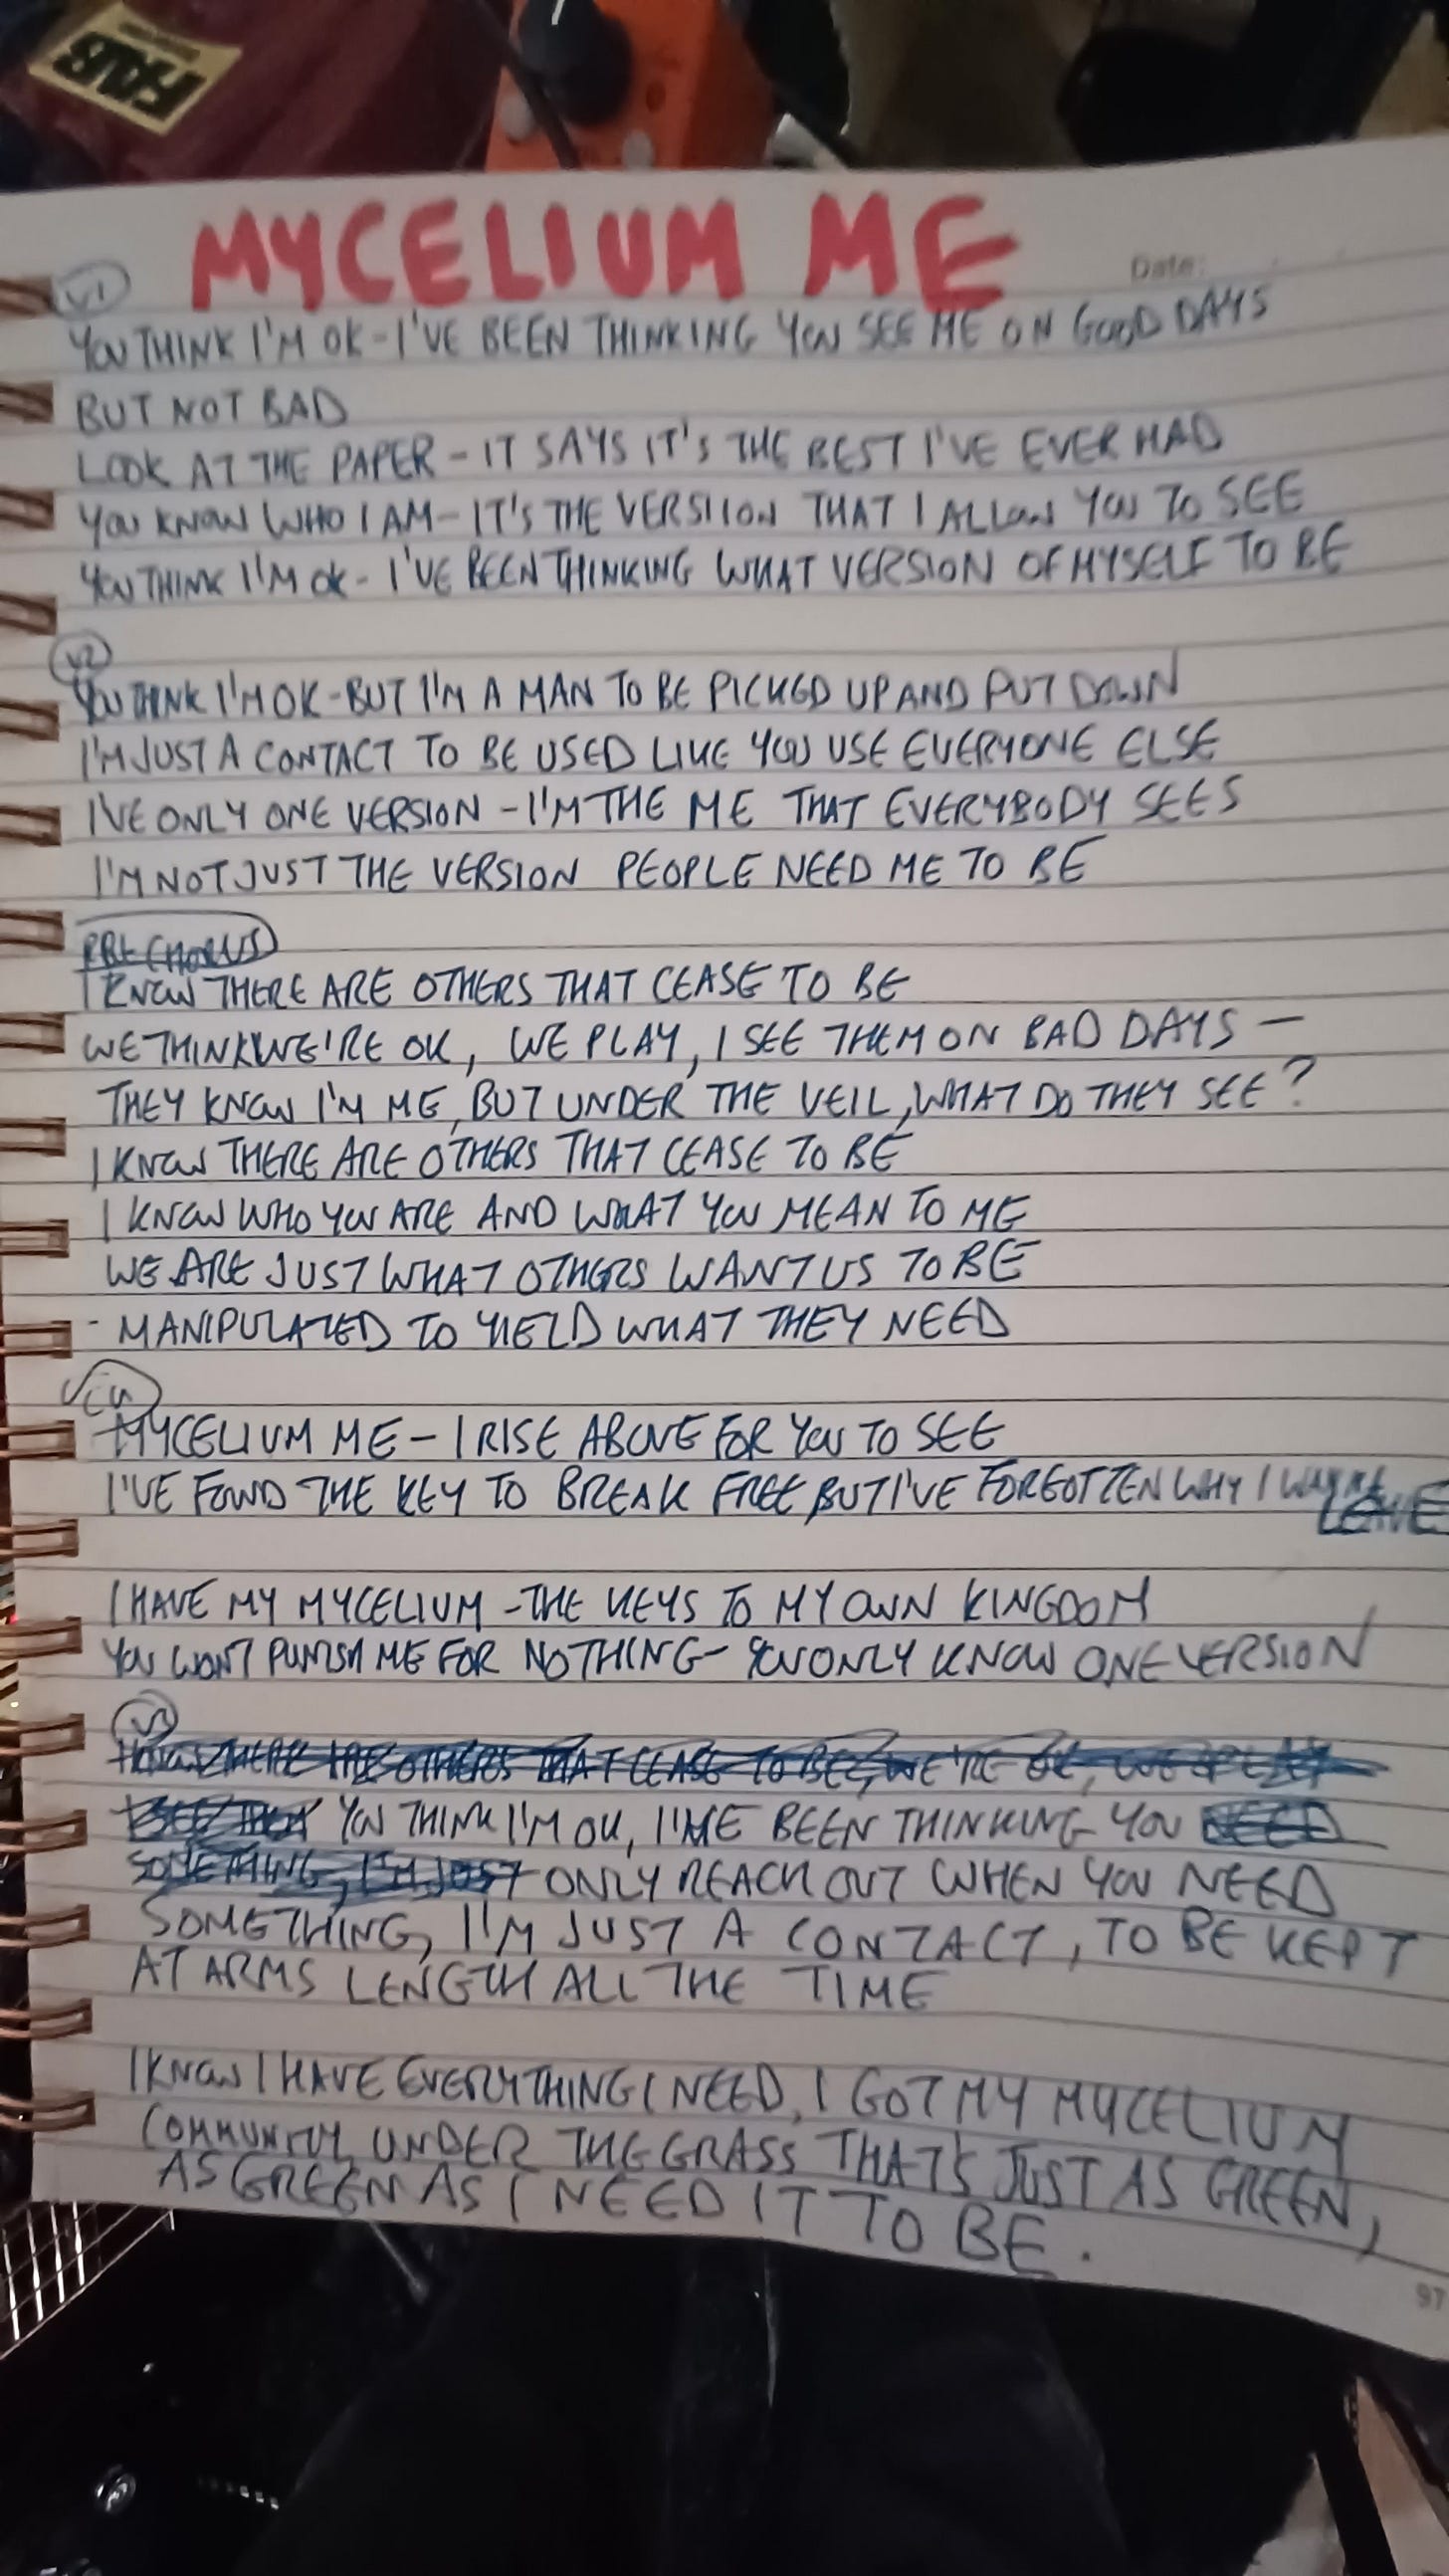 FOUR
MYCELIUM ME
Date:
V1
YOU THINK I'M OK - I'VE BEEN THINKING YOU SEE ME ON GOOD DAYS
BUT NOT BAD
LOOK AT THE PAPER - IT SAYS IT'S THE BEST I'VE EVER HAD
YOU KNOW WHO I AM - IT'S THE VERSIION THAT I ALLOW YOU TO SEE
YOU THINK I'M OK - I'VE BEEN THINKING WHAT VERSION OF MYSELF TO BE
V2
YOU THINK I'M OK - BUT I'M A MAN TO BE PICKED UP AND PUT DOWN
I'M JUST A CONTACT TO BE USED LIKE YOU USE EVERYONE ELSE
I'VE ONLY ONE VERSION - I'M THE ME THAT EVERYBODY SEES
I'M NOT JUST THE VERSION PEOPLE NEED ME TO BE
PRE CHORUS
I KNOW THERE ARE OTHERS THAT CEASE TO BE
WE THINK WE'RE OK, WE PLAY, I SEE THEM ON BAD DAYS -
THEY KNOW I'M ME, BUT UNDER THE VEIL, WHAT DO THEY SEE?
I KNOW THERE ARE OTHERS THAT CEASE TO BE
I KNOW WHO YOU ARE AND WHAT YOU MEAN TO ME
WE ARE JUST WHAT OTHERS WANT US TO BE
- MANIPULATED TO YIELD WHAT THEY NEED
CH
MYCELIUM ME - I RISE ABOVE FOR YOU TO SEE
I'VE FOUND THE KEY TO BREAK FREE, BUT I'VE FORGOTTEN WHY I
LEAVE
I HAVE MY MYCELIUM - THE KEYS TO MY OWN KINGDOM
YOU WON'T PUNISH ME FOR NOTHING - YOU ONLY KNOW ONE VERSION
V3
THERE ARE OTHERS THAT CEASE TO BE, WE'RE OK, WE PLAY
I SEE THEM YOU THINK I'M OK, I'VE BEEN THINKING YOU NEED
SOMETHING, I'M JUST ONLY REACH OUT WHEN YOU NEED
SOMETHING, I'M JUST A CONTACT, TO BE KEPT
AT ARMS LENGTH ALL THE TIME
I KNOW I HAVE EVERYTHING I NEED, I GOT MY MYCELIUM
COMMUNITY, UNDER THE GRASS THAT'S JUST AS GREEN,
AS GREEN AS I NEED IT TO BE.
97